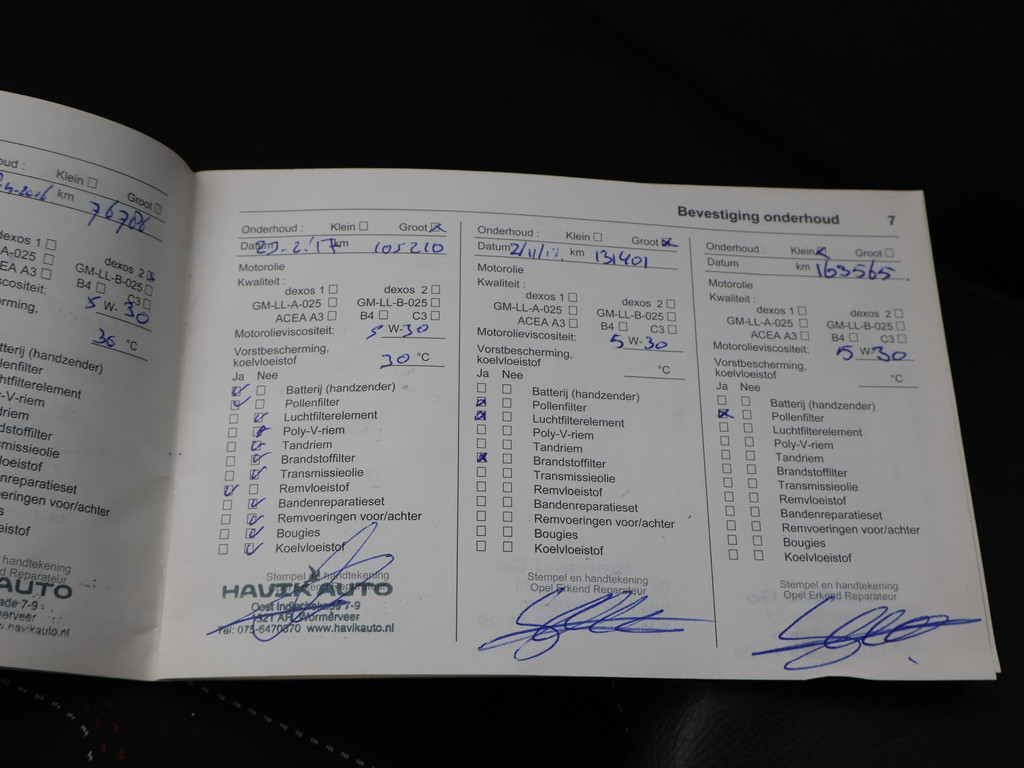 oud : Klein
Groot
km 76706
dexos 1
dexos 2
A-025
GM-LL-B-025
ACEA A3
B4 C3
iscositeit: 5 W-30
erming,
36 °C
tterij (handzender)
lenfilter
htfilterelement
y-V-riem
driem
dstoffilter
smissieolie
loeistof
nreparatieset
eringen voor/achter
s
eistof
handtekening
d Reparateur
AUTO
ade 7-9
merveer
w.havikauto.nl
Bevestiging onderhoud 7
Onderhoud : Klein Groot
Datum 23-2-'17 km 105210
Motorolie
Kwaliteit :
dexos 1 dexos 2
GM-LL-A-025 GM-LL-B-025
ACEA A3 B4 C3
Motorolieviscositeit: 5 W-30
Vorstbescherming,
koelvloeistof 30 °C
Ja Nee
Batterij (handzender)
Pollenfilter
Luchtfilterelement
Poly-V-riem
Tandriem
Brandstoffilter
Transmissieolie
Remvloeistof
Bandenreparatieset
Remvoeringen voor/achter
Bougies
Koelvloeistof
Stempel en handtekening
Opel Erkend Reparateur
HAVIK AUTO
Oost Indischekade 7-9
1521 AH Wormerveer
Tel: 075-6470870 www.havikauto.nl
Onderhoud : Klein Groot
Datum 2/11/17 km 131401
Motorolie
Kwaliteit :
dexos 1 dexos 2
GM-LL-A-025 GM-LL-B-025
ACEA A3 B4 C3
Motorolieviscositeit: 5 W-30
Vorstbescherming,
koelvloeistof °C
Ja Nee
Batterij (handzender)
Pollenfilter
Luchtfilterelement
Poly-V-riem
Tandriem
Brandstoffilter
Transmissieolie
Remvloeistof
Bandenreparatieset
Remvoeringen voor/achter
Bougies
Koelvloeistof
Stempel en handtekening
Opel Erkend Reparateur
Onderhoud : Klein Groot
Datum km 163565
Motorolie
Kwaliteit :
dexos 1 dexos 2
GM-LL-A-025 GM-LL-B-025
ACEA A3 B4 C3
Motorolieviscositeit: 5 W-30
Vorstbescherming,
koelvloeistof °C
Ja Nee
Batterij (handzender)
Pollenfilter
Luchtfilterelement
Poly-V-riem
Tandriem
Brandstoffilter
Transmissieolie
Remvloeistof
Bandenreparatieset
Remvoeringen voor/achter
Bougies
Koelvloeistof
Stempel en handtekening
Opel Erkend Reparateur